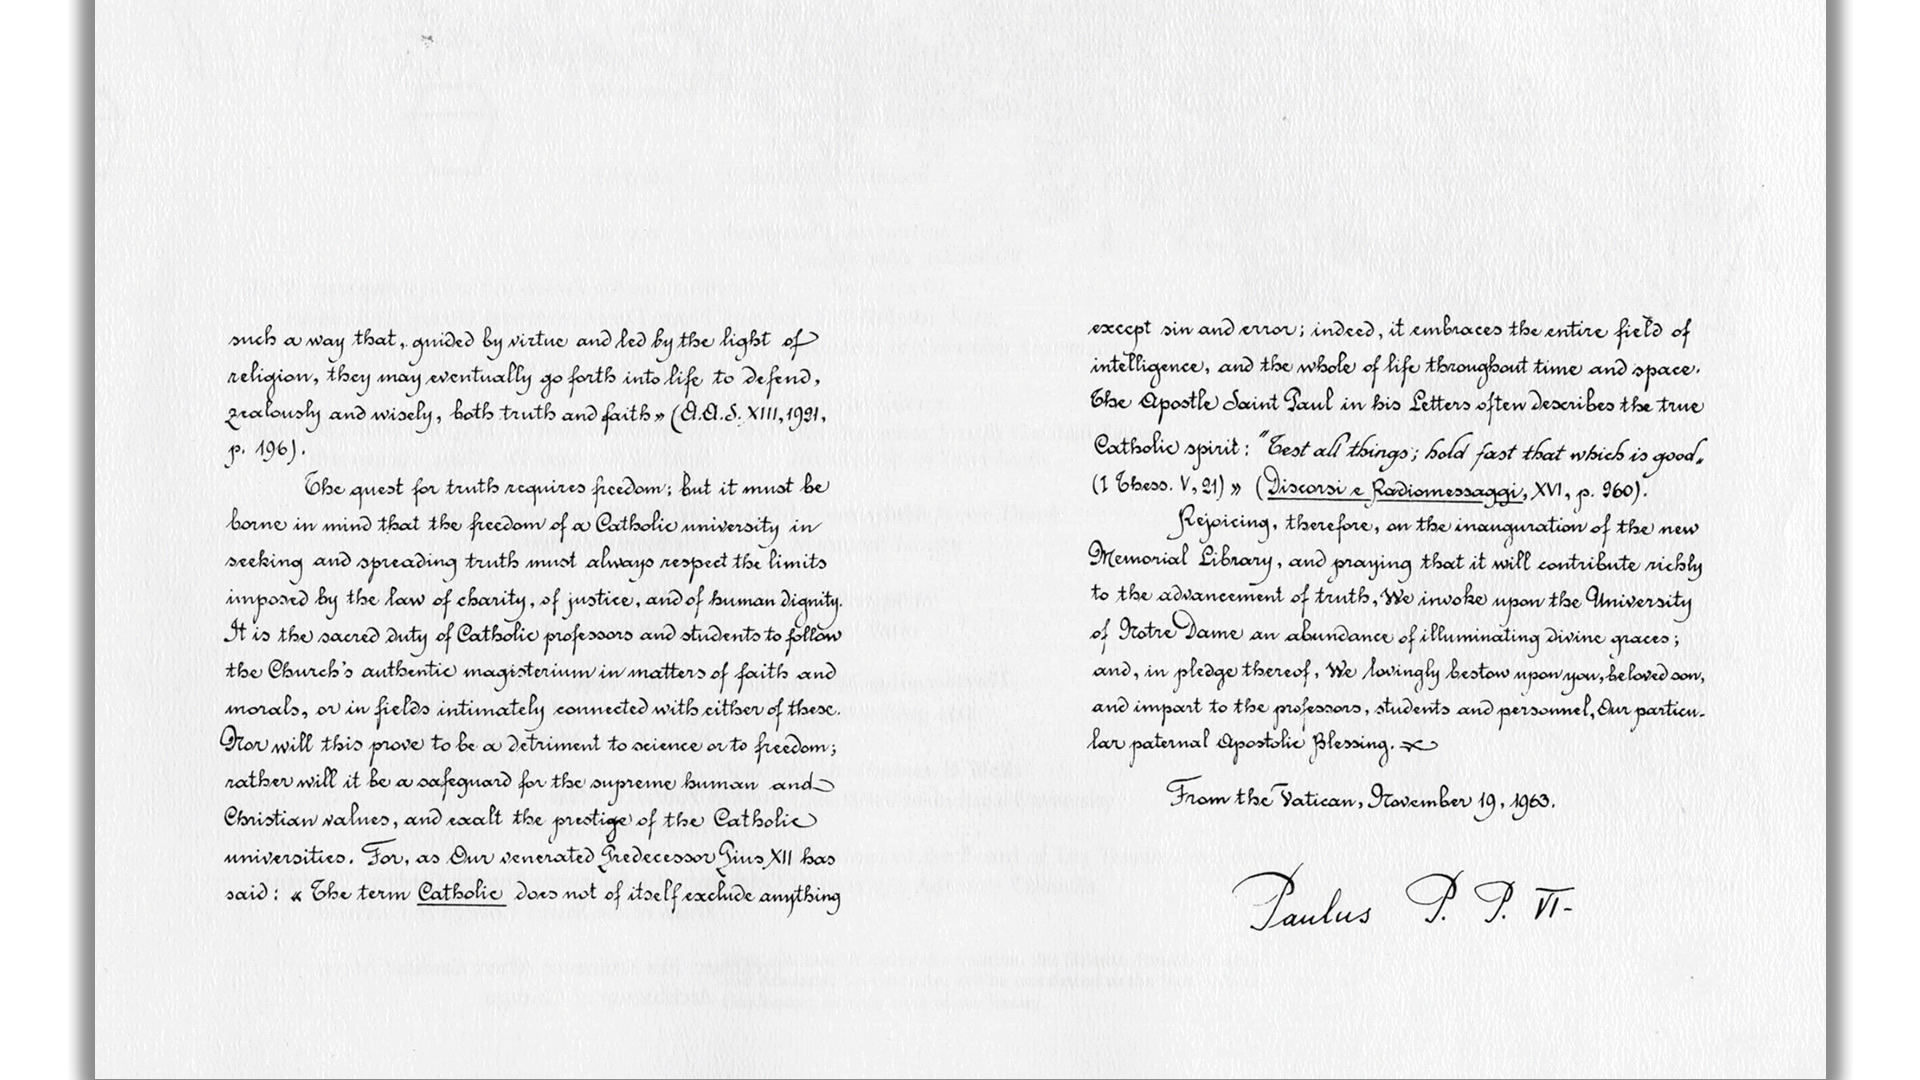 such a way that, guided by virtue and led by the light of
religion, they may eventually go forth into life to defend,
zealously and wisely, both truth and faith» (A.A.S. XIII, 1921,
p. 196).
The quest for truth requires freedom; but it must be
borne in mind that the freedom of a Catholic university in
seeking and spreading truth must always respect the limits
imposed by the law of charity, of justice, and of human dignity.
It is the sacred duty of Catholic professors and students to follow
the Church's authentic magisterium in matters of faith and
morals, or in fields intimately connected with either of these.
Nor will this prove to be a detriment to science or to freedom;
rather will it be a safeguard for the supreme human and
Christian values, and exalt the prestige of the Catholic
universities. For, as Our venerated Predecessor Pius XII has
said: « The term Catholic does not of itself exclude anything
except sin and error; indeed, it embraces the entire field of
intelligence, and the whole of life throughout time and space.
The Apostle Saint Paul in his Letters often describes the true
Catholic spirit: "Test all things; hold fast that which is good„
(I Thess. V, 21) » (Discorsi e Radiomessaggi, XVI, p. 260).
Rejoicing, therefore, on the inauguration of the new
Memorial Library, and praying that it will contribute richly
to the advancement of truth, We invoke upon the University
of Notre Dame an abundance of illuminating divine graces;
and, in pledge thereof, We lovingly bestow upon you, beloved son,
and impart to the professors, students and personnel, Our particu-
lar paternal Apostolic Blessing.
From the Vatican, November 19, 1963.
Paulus P. P. VI-